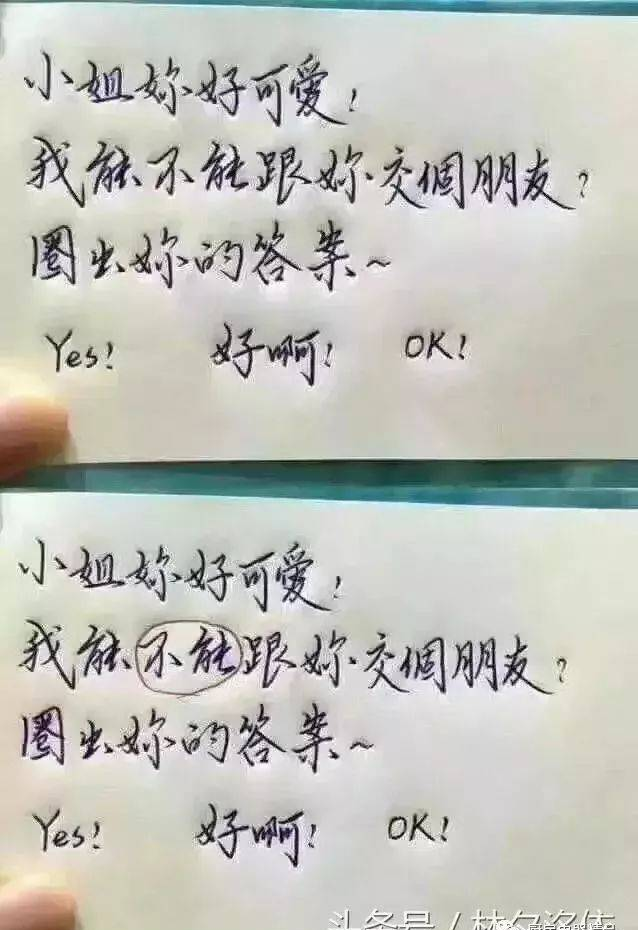 小姐妳好可愛!
我能不能跟妳交個朋友?
圈出妳的答案~
Yes! 好啊! OK!
小姐妳好可愛!
我能不能跟妳交個朋友?
圈出妳的答案~
Yes! 好啊! OK!
头条号/林夕洛依